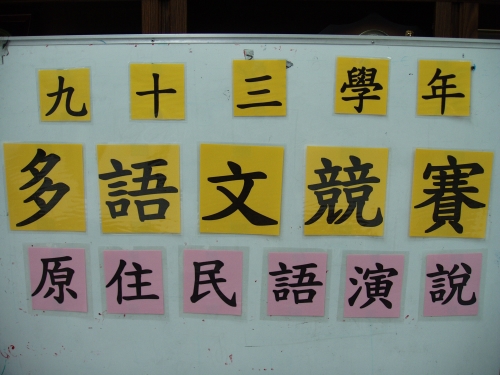 九十三學年
多語文競賽
原住民語演說